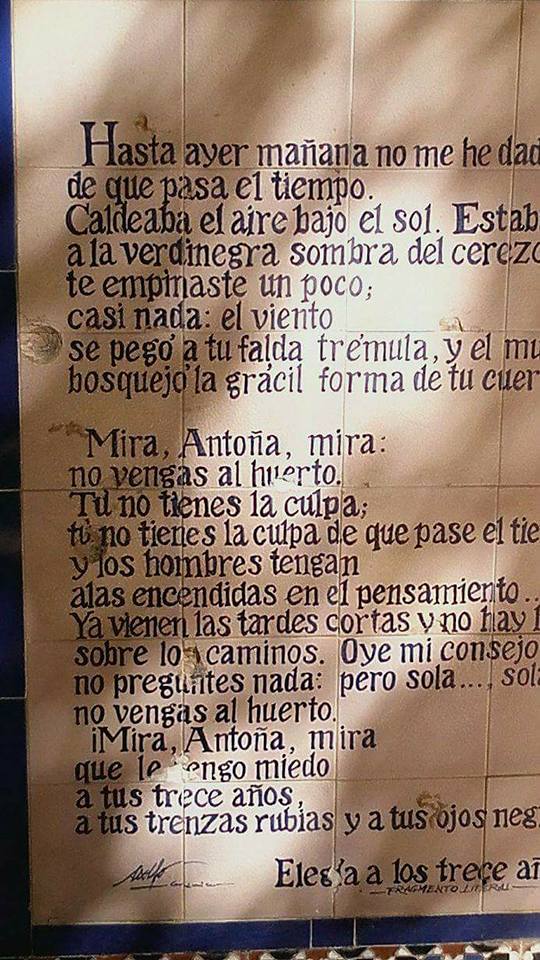 Hasta ayer mañana no me he dad
de que pasa el tiempo.
Caldeaba el aire bajo el sol. Estab
a la verdinegra sombra del cerezo
te empinaste un poco;
casi nada: el viento
se pegó a tu falda trémula, y el mu
bosquejó la grácil forma de tu cuer
Mira, Antoña, mira:
no vengas al huerto.
Tú no tienes la culpa;
tú no tienes la culpa de que pase el tie
y los hombres tengan
alas encendidas en el pensamiento...
Ya vienen las tardes cortas y no hay
sobre los caminos. Oye mi consejo
no preguntes nada: pero sola..., sola
no vengas al huerto.
¡Mira, Antoña, mira
que le tengo miedo
a tus trece años,
a tus trenzas rubias y a tus ojos neg
Adolfo
Elegía a los trece añ
FRAGMENTO LITERAL